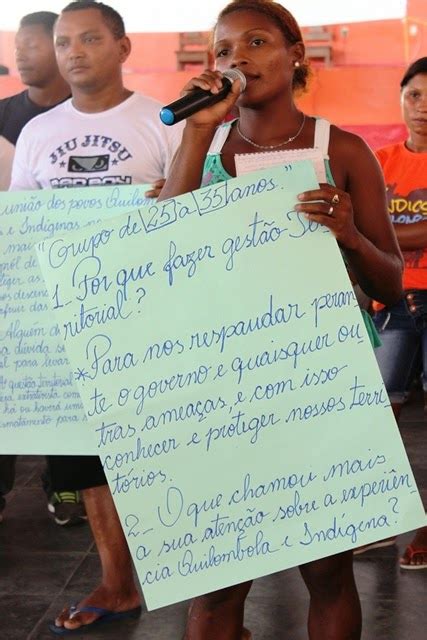 JIU JITSU
união dos povos Quilombo
e Indígenas
mais
"Grupo de 25 a 35 anos."
1. Por que fazer gestão
ritorial?
*Para nos respaudar peran
te o governo e quaisquer ou
tras ameaças, e com isso
conhecer e proteger nossos terri
tórios.
2_ O que chamou mais
a sua atenção sobre a experiên
cia Quilombola e Indígena?